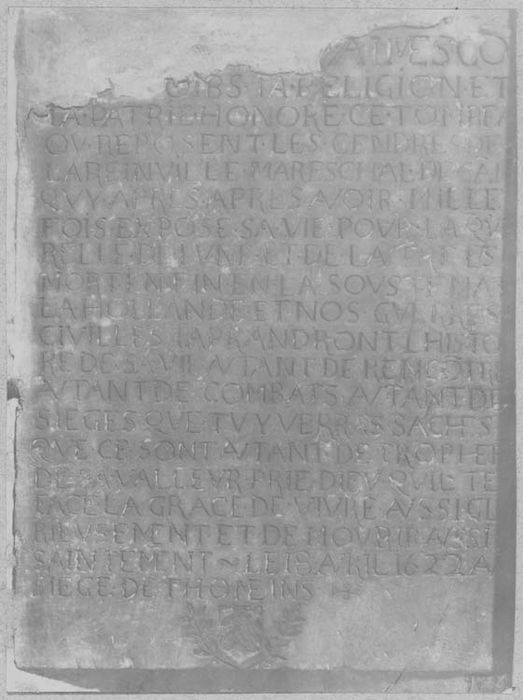 ADVESCO
OIBS·TA·RELIGION·ET
TA·PATRIE·HONORE·CE·TOMBEA
OV·REPOSENT·LES·CENDRES·DE
LAREINVILLE·MARESCHAL·DE·CAM
QVY·APRES·APRES·AVOIR·MILLE
FOIS·EXPOSE·SA·VIE·POVR·LA·QV
RELLE·DE·LVNE·ET·DE·LA
MORT·ENFIN·EN·LA·SOVSTENA
LA·HOLLANDE·ET·NOS·GVERRES
CIVILLES·TAPRANDRONT·LHISTO
RE·DE·SA·VIE·AVTANT·DE·RENCOTR
AVTANT·DE·COMBATS·AVTANT·DE
SIEGES·QVE·TV·Y·VERRAS·SACHES
QVE·CE·SONT·AVTANT·DE·TROPHE
DE·SA·VALLEVR·PRIE·DIEV·QVIL·TE
FACE·LA·GRACE·DE·VIVRE·AVSSI·GL
RIEVSEMENT·ET·DE·MOVRIR·AVSSI
SAINTEMENT ~ LE·18·AVRIL·1622·A
SIEGE·DE·THONEINS